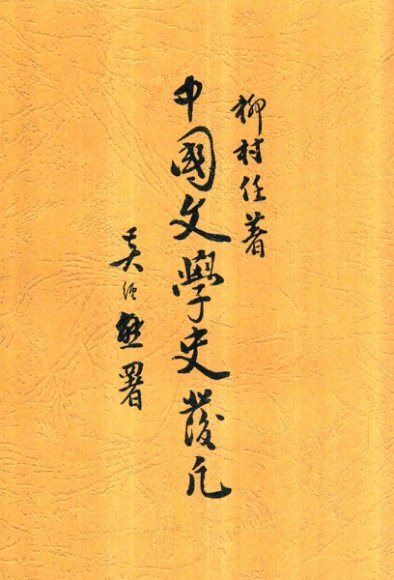 柳村任著
中國文學史發凡
吳經熊署